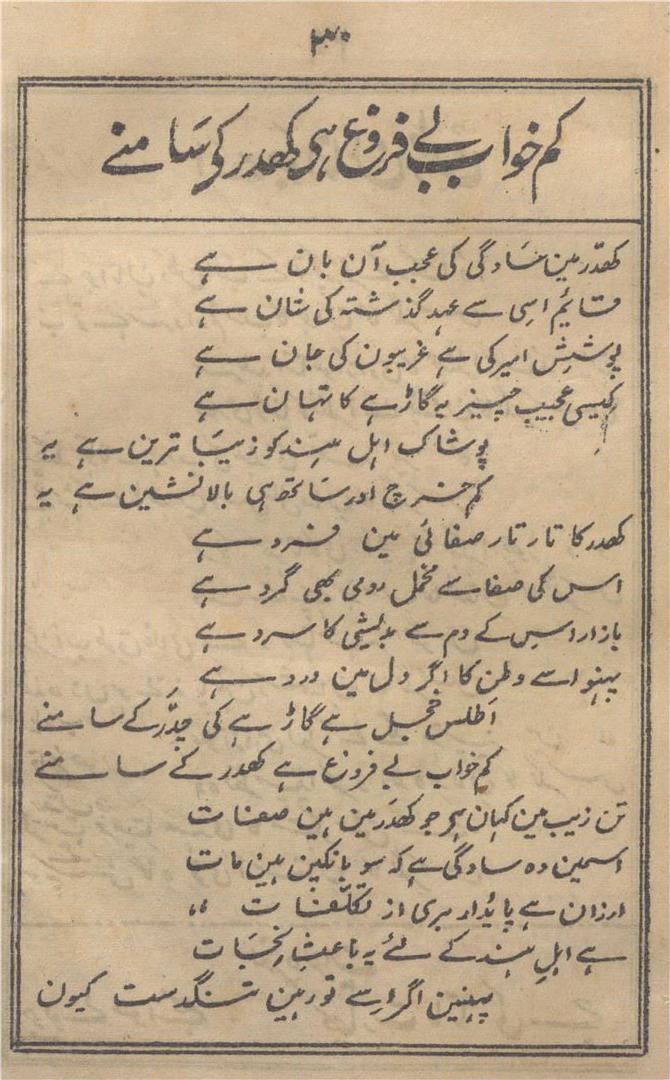 ۳۰
کم خواب بے فروغ ہی کھدر کی سامنے
کھدّر مین سادگی کی عجب آن بان ہے
قایٔم اسی سے عہد گذشتہ کی شان ہے
پوشش امیر کی ہے غریبون کی جان ہے
کیسی عجیب چیز یہ گاڑہے کا تہان ہے
پوشاک اہل ہند کو زیبا ترین ہے یہ
کم خرچ اور ساتھ ہی بالا نشین ہے یہ
کھدر کا تار تار صفائی مین فرد ہے
اس کی صفا سے مخمل رومی بھی گرد ہے
بازار اس کے دم سے بدیشی کا سرد ہے
پہنو اسے وطن کا اگر دل مین درد ہے
اطلس خجل ہے گاڑہے کی چدّر کے سامنے
کم خواب بے فروغ ہے کھدر کے سامنے
تن زیب مین کہان ہی جو کھدر مین ہین صفات
اسمین وہ سادگی ہے کہ سو بانکپن ہین مات
ارزان ہے پایٔدار بری از تکلّفات ،،
ہے اہلِ ہند کے لئے یہ باعثِ نجات
پہنین اگر اسے تو رہین تنگدست کیون